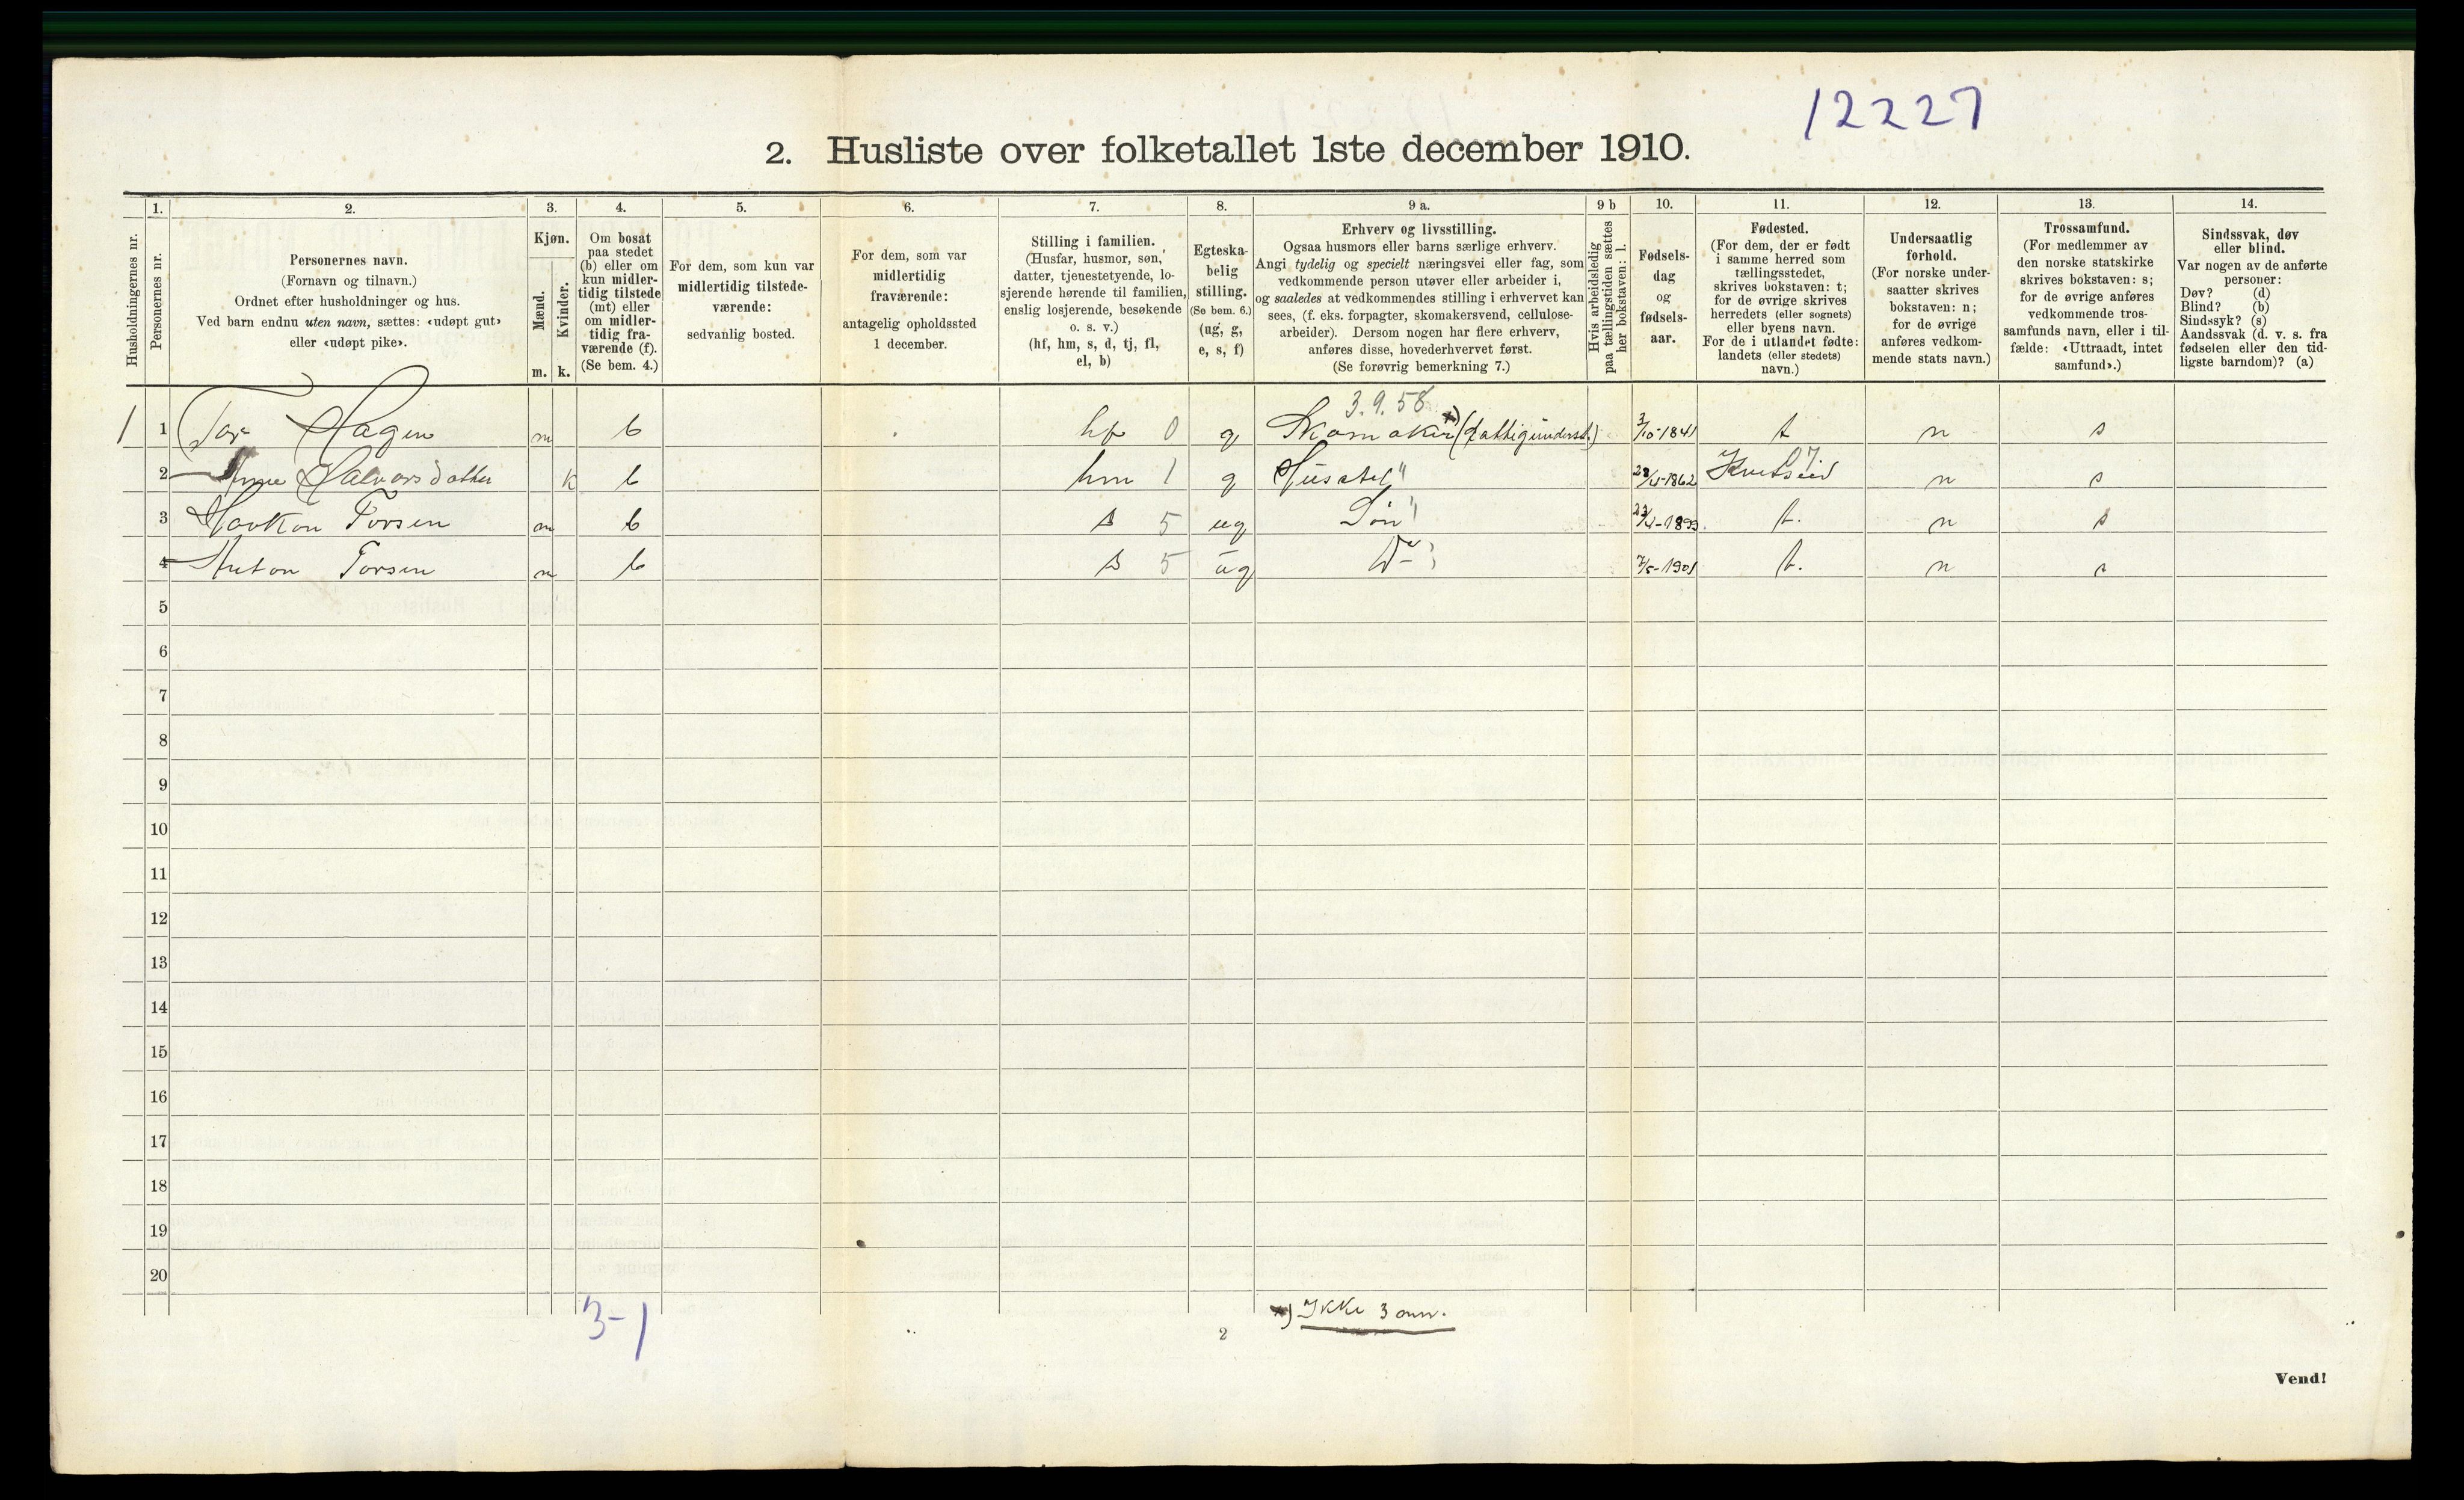 12227
2. Husliste over folketallet 1ste december 1910.
1. 2. 3. 4. 5. 6. 7. 8. 9 a. 9 b 10. 11. 12. 13. 14.
Husholdningernes nr.
Personernes nr.
Personernes navn.
(Fornavn og tilnavn.)
Ordnet efter husholdninger og hus.
Ved barn endnu uten navn, sættes: «udøpt gut»
eller «udøpt pike».
Kjøn.
Mænd.
Kvinder.
m. k.
Om bosat
paa stedet
(b) eller om
kun midler-
tidig tilstede
(mt) eller
om midler-
tidig fra-
værende (f).
(Se bem. 4.)
For dem, som kun var
midlertidig tilstede-
værende:
sedvanlig bosted.
For dem, som var
midlertidig
fraværende:
antagelig opholdssted
1 december.
Stilling i familien.
(Husfar, husmor, søn,
datter, tjenestetyende, lo-
sjerende hørende til familien,
enslig losjerende, besøkende
o. s. v.)
(hf, hm, s, d, tj, fl,
el, b)
Egteska-
belig
stilling.
(Se bem. 6.)
(ug, g,
e, s, f)
Erhverv og livsstilling.
Ogsaa husmors eller barns særlige erhverv.
Angi tydelig og specielt næringsvei eller fag, som
vedkommende person utøver eller arbeider i,
og saaledes at vedkommendes stilling i erhvervet kan
sees, (f. eks. forpagter, skomakersvend, cellulose-
arbeider). Dersom nogen har flere erhverv,
anføres disse, hovederhvervet først.
(Se forøvrig bemerkning 7.)
Hvis arbeidsledig
paa tællingstiden sættes
her bokstaven: l.
Fødsels-
dag
og
fødsels-
aar.
Fødested.
(For dem, der er født
i samme herred som
tællingsstedet,
skrives bokstaven: t;
for de øvrige skrives
herredets (eller sognets)
eller byens navn.
For de i utlandet fødte:
landets (eller stedets)
navn.)
Undersaatlig
forhold.
(For norske under-
saatter skrives
bokstaven: n;
for de øvrige
anføres vedkom-
mende stats navn.)
Trossamfund.
(For medlemmer av
den norske statskirke
skrives bokstaven: s;
for de øvrige anføres
vedkommende tros-
samfunds navn, eller i til-
fælde: «Uttraadt, intet
samfund».)
Sindssvak, døv
eller blind.
Var nogen av de anførte
personer:
Døv? (d)
Blind? (b)
Sindssyk? (s)
Aandssvak (d. v. s. fra
fødselen eller den tid-
ligste barndom)? (a)
3.9.58
1 1 Tor Hagen m b hf 0 g Skomaker x) (fattigunderst.) 3/10-1841 t n s
2 Anne Halvorsdatter k b hm 1 g Husstel " 1862 Kvitseid n s
3 Haakon Torsen m b s 5 ug Søn " 1899 t. n s
4 Anton Torsen m b s 5 ug D" 7/5-1901 t. n s
5
6
7
8
9
10
11
12
13
14
15
16
17
18
19
20
3-1
x) Ikke 3 ann.
2
Vend!